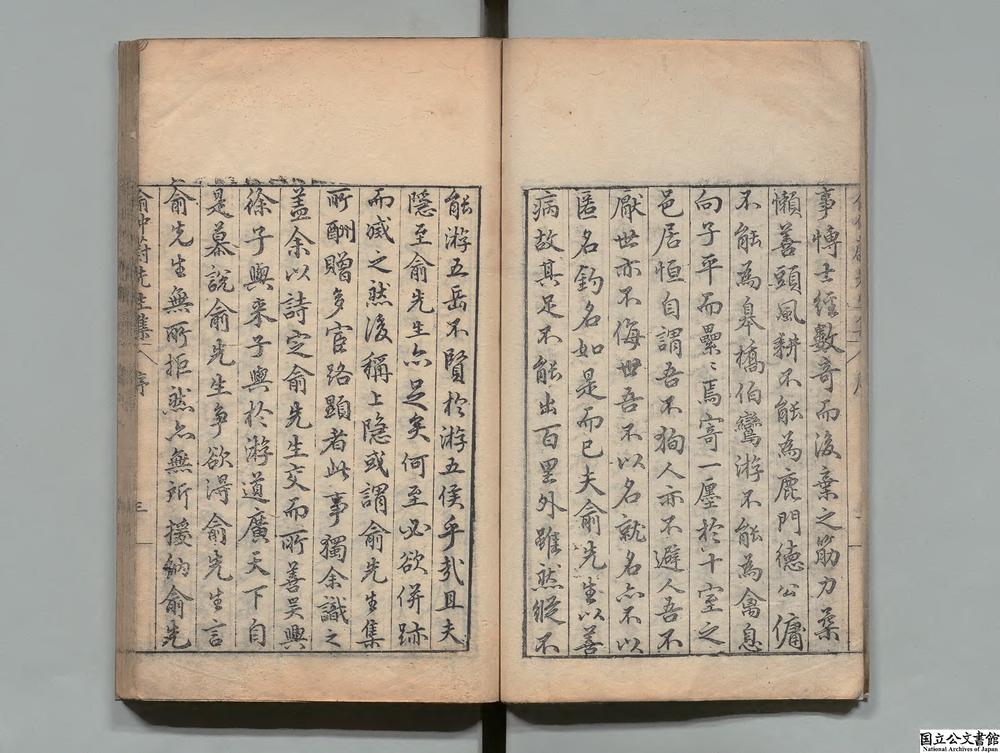 事博士經數奇而後棄之筋力柔
懶善頭風耕不能為鹿門德公傭
不能為皋橋伯鸞游不能為禽息
向子平而纍〻焉寄一廛於十室之
邑居恒自謂吾不狥人亦不避人吾不
厭世亦不侮世吾不以名就名亦不以
匿名釣名如是而已夫俞先生以善
病故其足不能出百里外雖然縱不
能游五岳不賢於游五侯乎哉且夫
隱至俞先生亦足矣何至必欲併跡
而滅之然後稱上隱或謂俞先生集
所酬贈多宦路顯者此事獨余識之
盖余以詩定俞先生交而所善吳興
徐子與來子與於游道廣天下自
是慕說俞先生爭欲得俞先生言
俞先生無所拒然亦無所援納俞先
俞仲蔚先生集 序 三
国立公文書館
National Archives of Japan